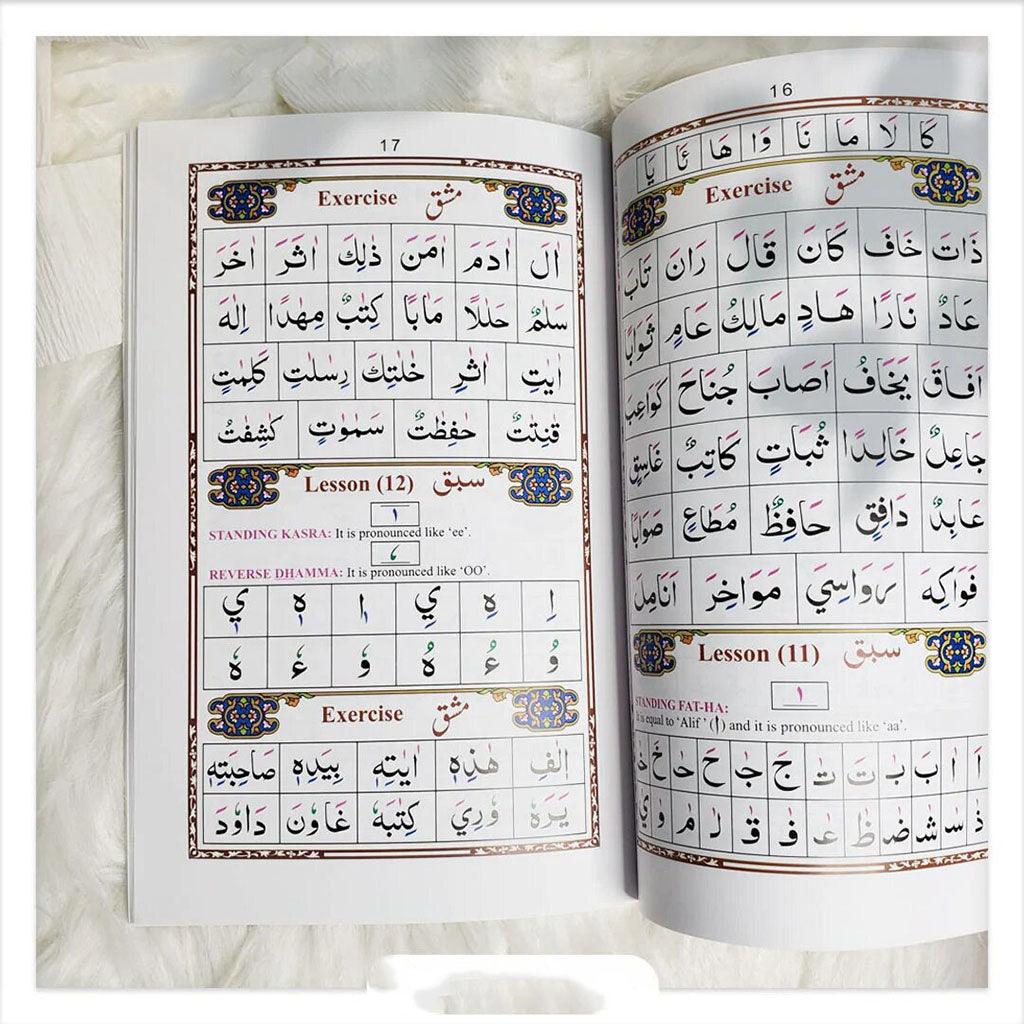 16
كَا لَا مَا نَا وَا هَا ئَا يَا
Exercise مشق
ذَاتَ خَافَ كَانَ قَالَ رَانَ تَابَ
عَادٌ نَارًا هَادٍ مَالِكُ عَامٍ ثَوَابًا
اَفَاقَ يَخَافُ اَصَابَ جُنَاحَ كَوَاعِبَ
جَاعِلٌ خَالِدًا ثُبَاتٍ كَاتِبٌ غَاسِقٍ
عَابِدٌ دَافِقٍ حَافِظٌ مُطَاعٍ صَوَابًا
فَوَاكِهَ رَوَاسِيَ مَوَاخِرَ اَنَامِلَ
Lesson (11) سبق
STANDING FAT-HA:
It is equal to ‘Alif’ (ا) and it is pronounced like ‘aa’.
17
Exercise مشق
اٰلَ اٰدَمَ اٰمَنَ ذٰلِكَ اٰثَرَ اٰخَرَ
سَلٰمٌ حَلٰلًا مَاٰبًا كِتٰبٌ مِهٰدًا اِلٰهَ
اٰيٰتٍ اٰثٰرِ خٰلٰتِكَ رِسٰلٰتِ كَلِمٰتٍ
قٰنِتٰتٌ حٰفِظٰتٌ سَمٰوٰتٍ كٰشِفٰتُ
Lesson (12) سبق
STANDING KASRA: It is pronounced like ‘ee’.
REVERSE DHAMMA: It is pronounced like ‘OO’.
اِ هِ يِ اٖ هٖ يٖ
وُ ءُ هُ وٗ ءٗ هٗ
Exercise مشق
اٖلٰفِ هٰذِهٖ اٰيٰتِهٖ بِيَدِهٖ صَاحِبَتِهٖ
يَرَهٗ وٗرِيَ كِتٰبَهٗ غَاوٗنَ دَاوٗدَ